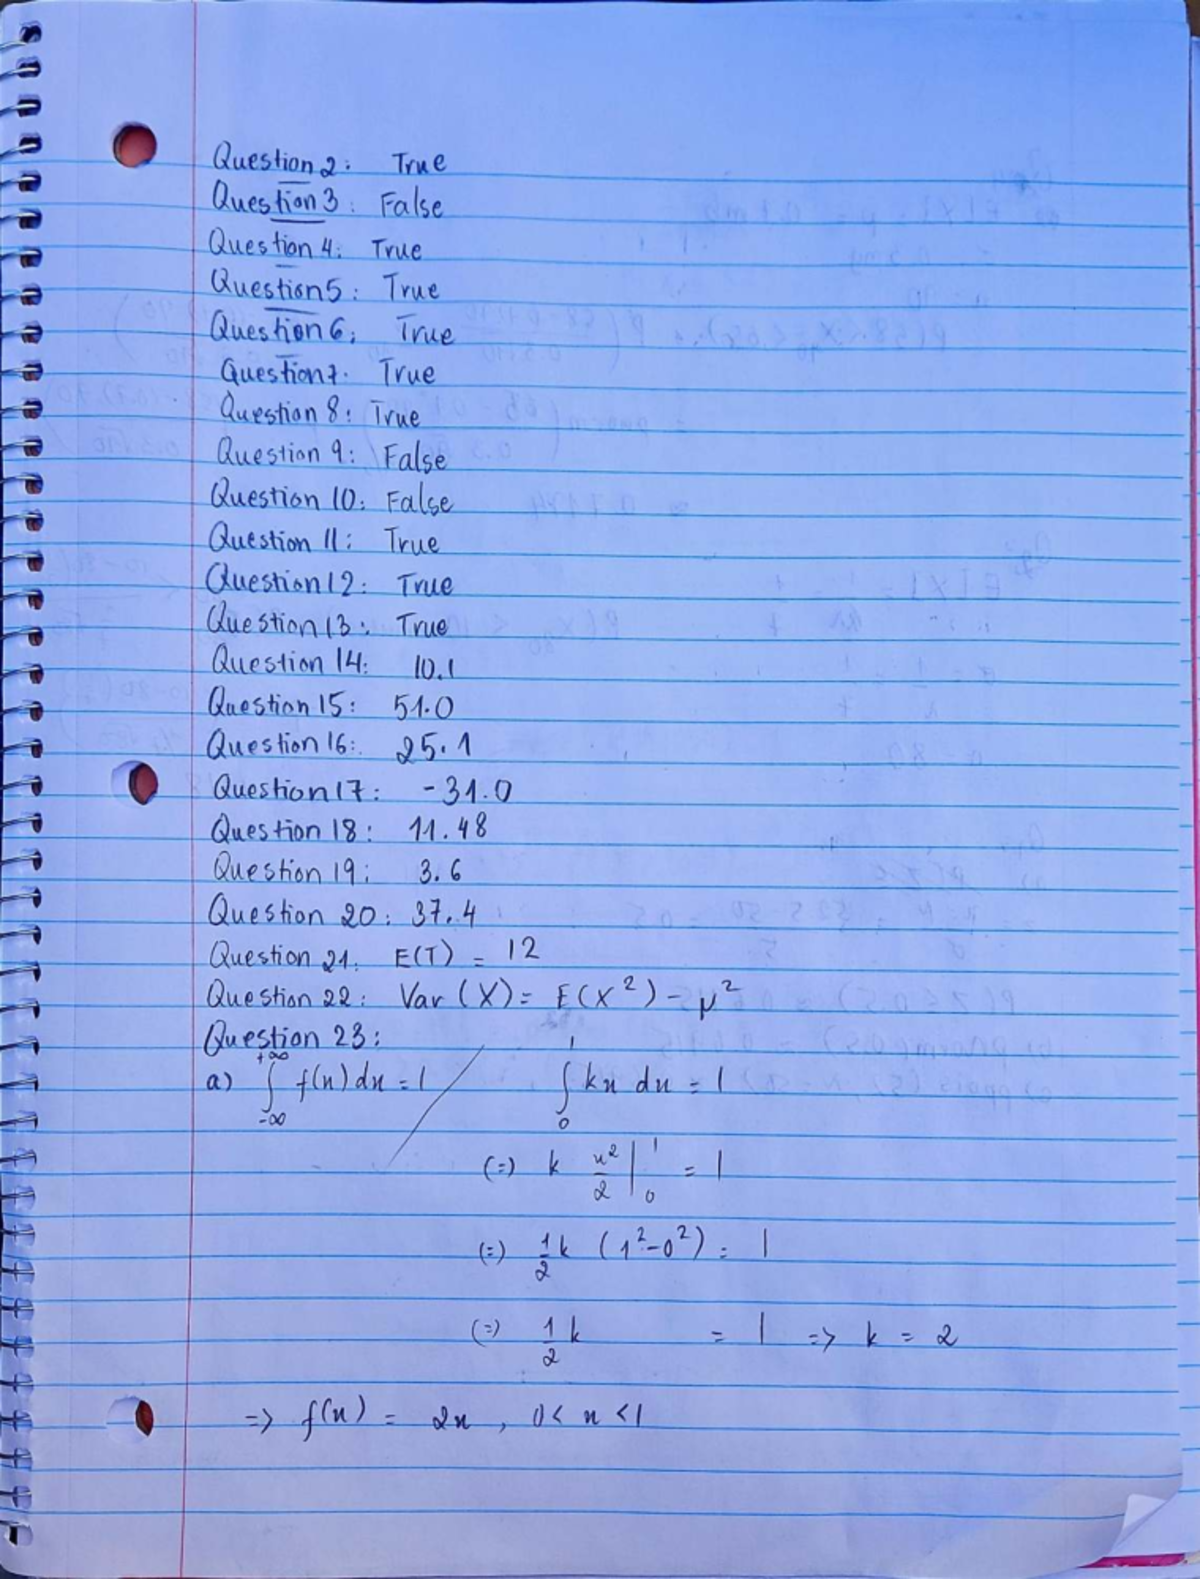 Question 2: True
Question 3: False
Question 4: True
Question 5: True
Question 6: True
Question 7. True
Question 8: True
Question 9: False
Question 10: False
Question 11: True
Question 12: True
Question 13: True
Question 14: 10.1
Question 15: 51.0
Question 16: 25.1
Question 17: -31.0
Question 18: 11.48
Question 19: 3.6
Question 20: 37.4
Question 21. E(T) = 12
Question 22: Var (X) = E(X²) - μ²
Question 23:
a) ∫_{-∞}^{+∞} f(x) dx = 1 / ∫_0^1 kx dx = 1
(=) k x²/2 |_0^1 = 1
(=) 1/2 k (1² - 0²) = 1
(=) 1/2 k = 1 => k = 2
=> f(x) = 2x , 0 < x < 1